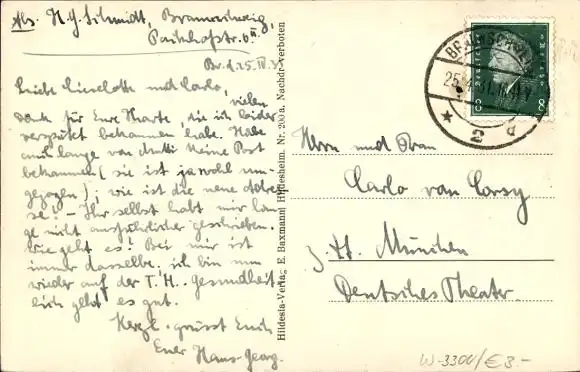 Abs. H. G. Schmidt, Braunschweig,
Packhofstr. 6 II.
Br. d. 25. IV. 31
Liebe Lieselotte und Carlo,
vielen
Dank für Eure Karte, die ich leider
verspätet bekommen habe. Habe
auch lange von Mutti keine Post
bekommen (sie ist ja wohl um-
gezogen); wie ist die neue Adres-
se! – Ihr selbst habt mir lan-
ge nicht ausführlicher geschrieben.
Wie geht es? Bei mir ist
immer dasselbe, ich bin nun
wieder auf der T. H., Gesundheit-
lich geht es gut.
Herzl. grüsst Euch
Euer Hans-Georg.
Hildesia-Verlag E. Baxmann Hildesheim. Nr. 200 a. Nachdr. verboten
BRAUNSCHWEIG
25. 4. 31.
* 2 d
8 8
Herrn und Frau
Carlo van Corsy
z. Zt. München
Deutsches Theater
W-3300/€3.-